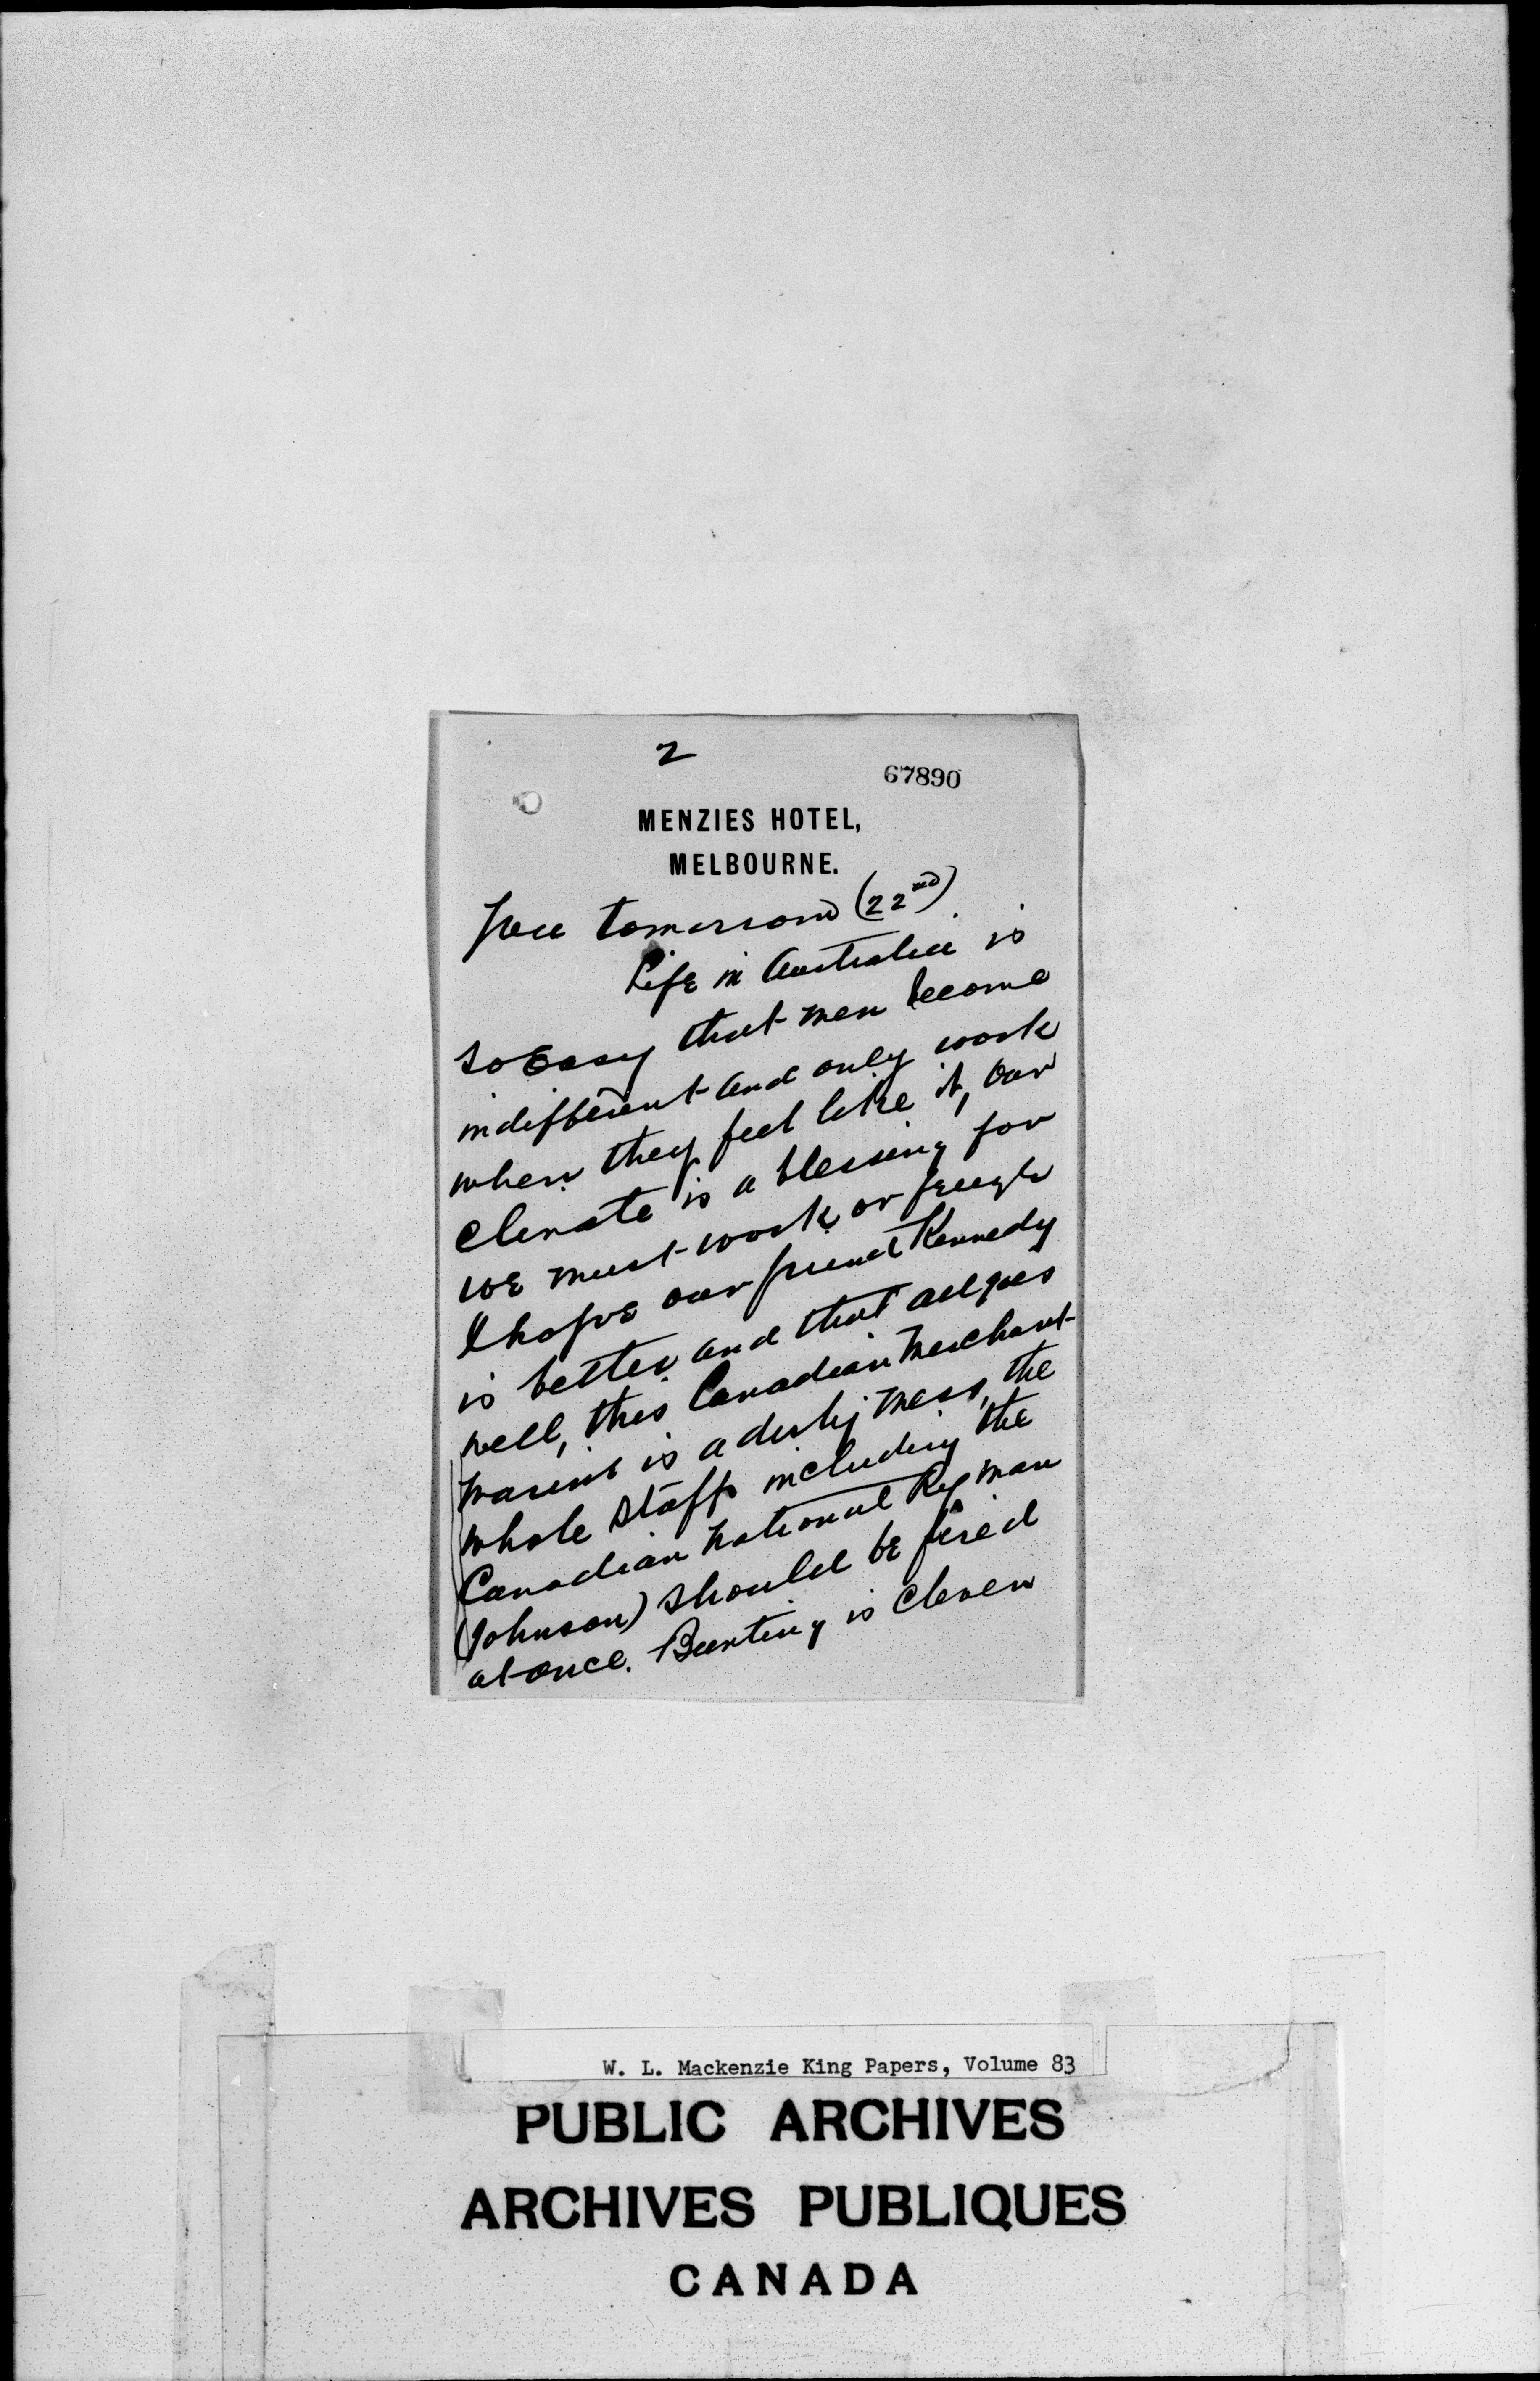 2
67890
MENZIES HOTEL,
MELBOURNE.
free tomorrow (22nd).
Life in Australia is
so Easy that men become
indifferent and only work
when they feel like it, our
climate is a blessing for
we must work or
I hope our friend Kennedy
is better and that all goes
well, this Canadian Merchant
marine is a dirty mess, the
whole staff including the
Canadian National Ry man
(Johnson) should be fired
at once. Bunting is clever
W. L. Mackenzie King Papers, Volume 83
PUBLIC ARCHIVES
ARCHIVES PUBLIQUES
CANADA